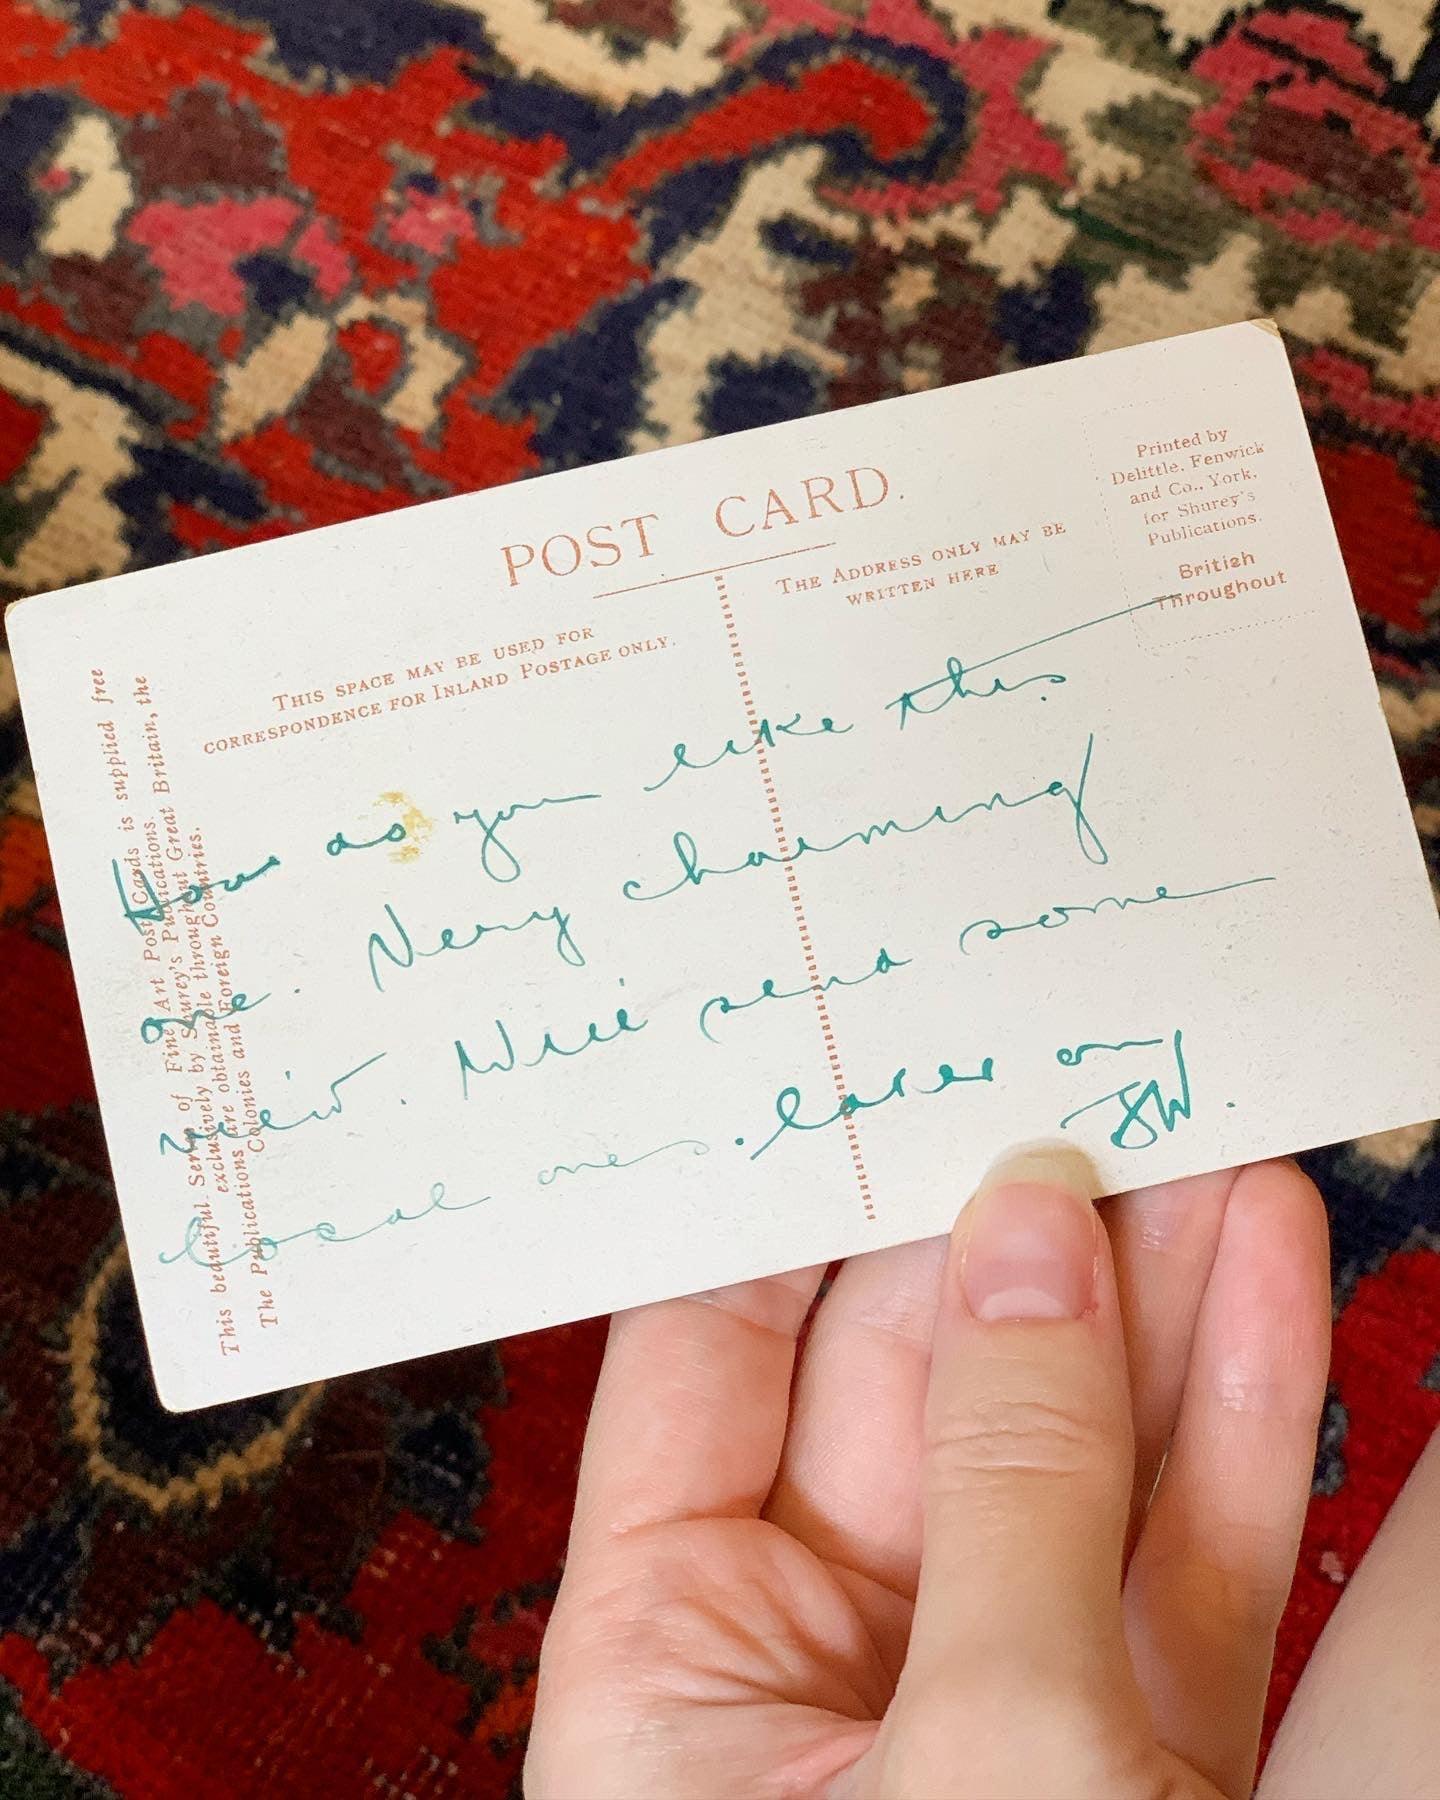 POST CARD.
THIS SPACE MAY BE USED FOR
CORRESPONDENCE FOR INLAND POSTAGE ONLY.
THE ADDRESS ONLY MAY BE
WRITTEN HERE
Printed by
Delittle, Fenwick
and Co., York,
for Shurey's
Publications.
British
Throughout
This beautiful Series of Fine Art Post Cards is supplied free
exclusively by Shurey's Publications.
The Publications are obtainable throughout Great Britain, the
Colonies and Foreign Countries.
How do you like this
. Very charming
view. Will send some
local ones. later on
JW.